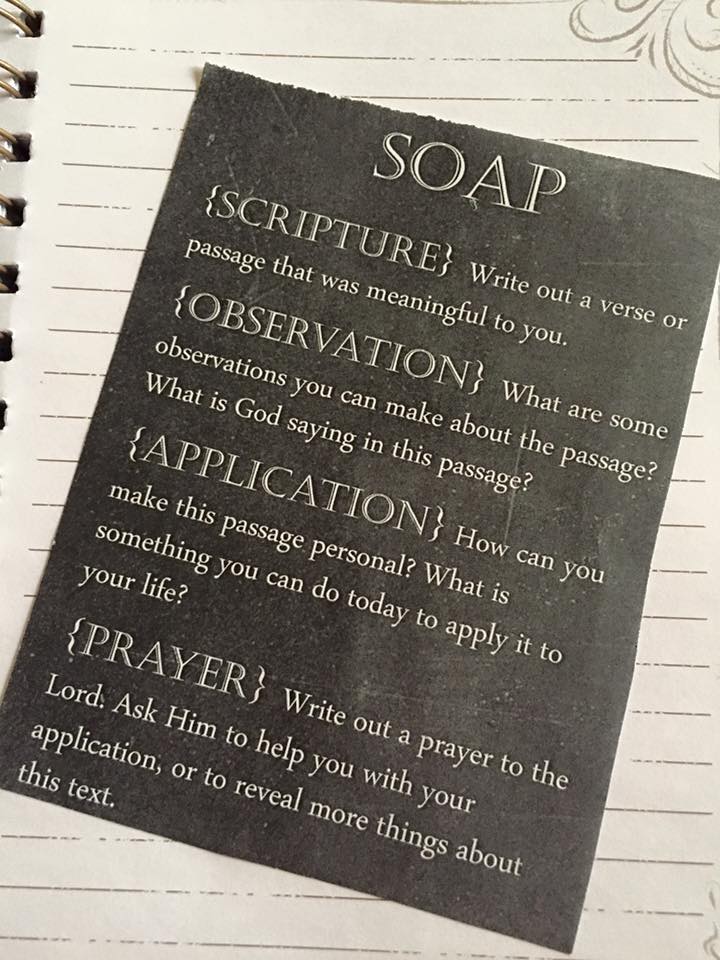 SOAP
{SCRIPTURE} Write out a verse or
passage that was meaningful to you.
{OBSERVATION} What are some
observations you can make about the passage?
What is God saying in this passage?
{APPLICATION} How can you
make this passage personal? What is
something you can do today to apply it to
your life?
{PRAYER} Write out a prayer to the
Lord. Ask Him to help you with your
application, or to reveal more things about
this text.